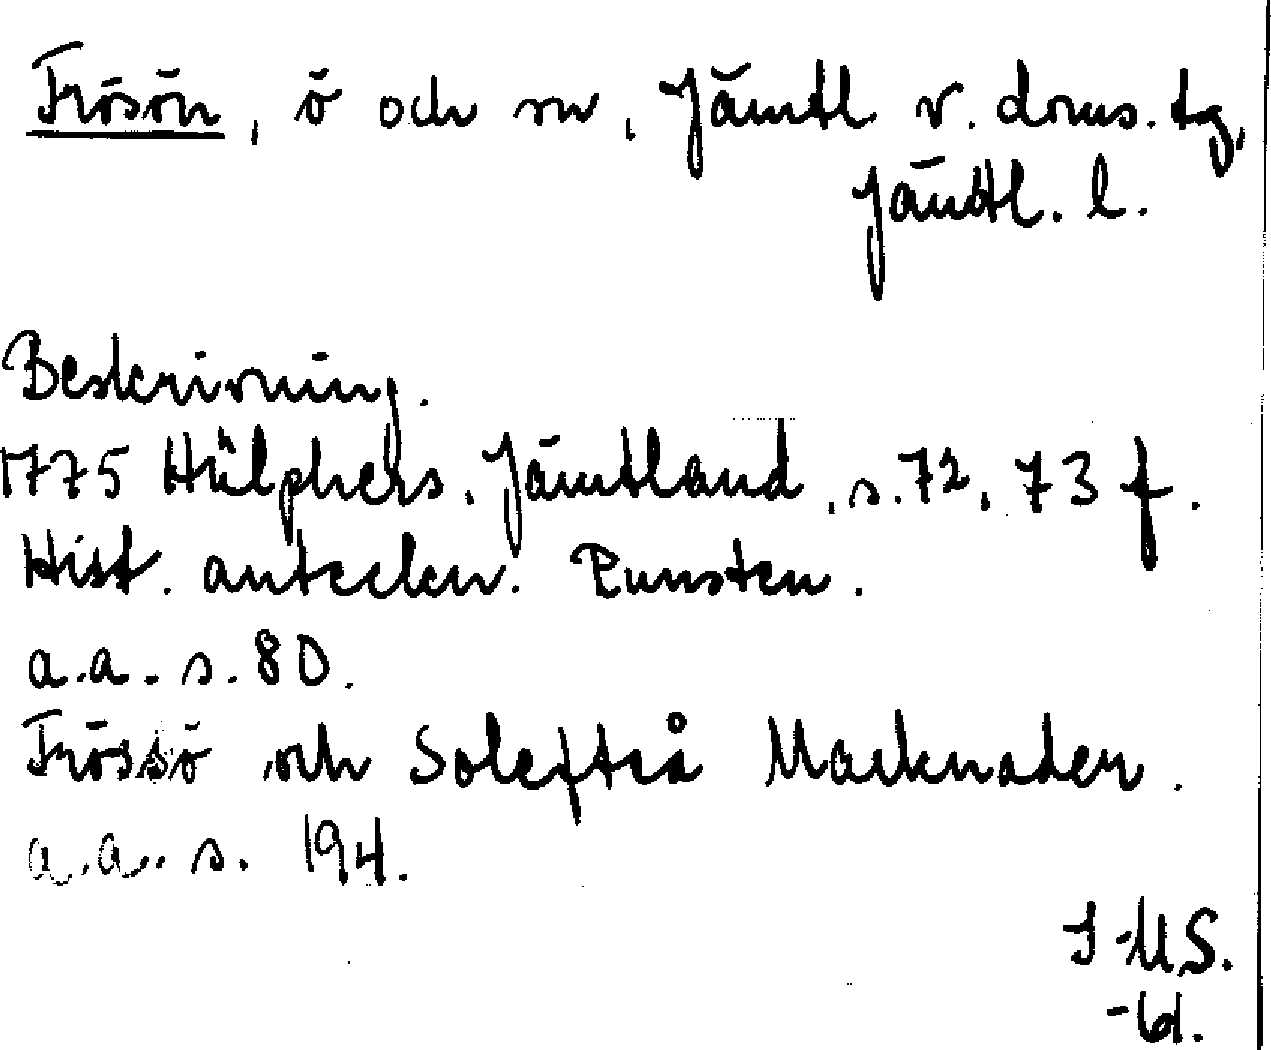 Frösön, ö och sn, Jämtl v. doms. tg,
Jämtl. l.
Beskrivning.
1775 Hülphers. Jämtland, s. 72, 73 f.
Hist. anteckn. Runsten.
a.a. s. 80.
Frössö och Solefteå Marknader.
a.a. s. 194.
I-MS.
-61.